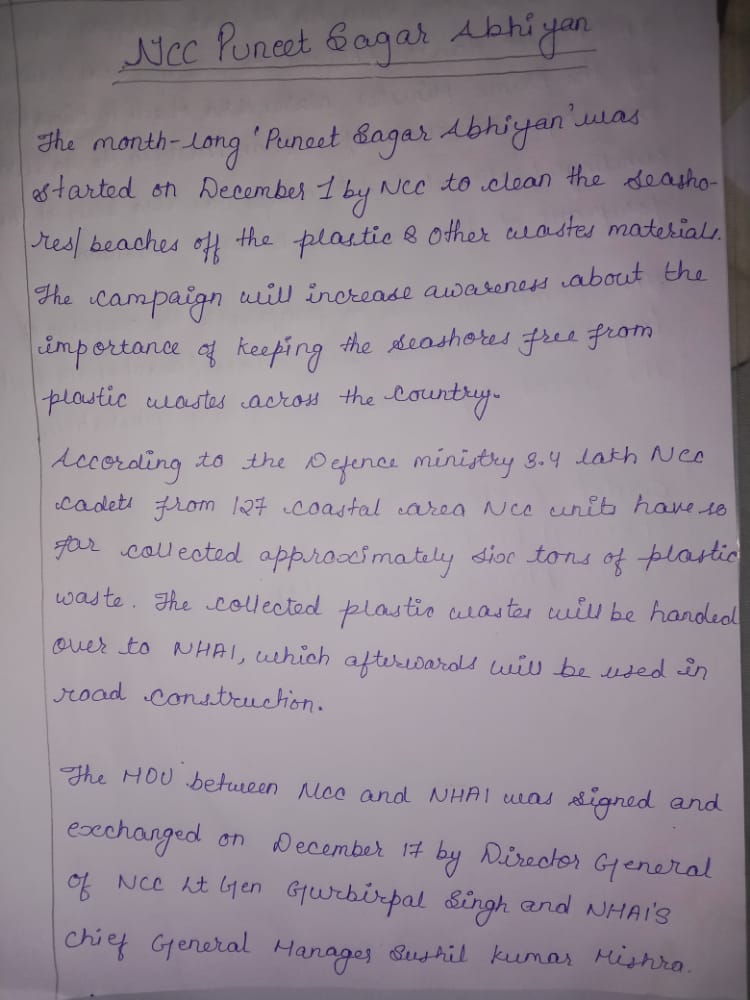 NCC Puneet Sagar Abhiyan
The month-long 'Puneet Sagar Abhiyan' was
started on December 1 by NCC to clean the seasho-
res/beaches off the plastic & other wastes materials.
The campaign will increase awareness about the
importance of keeping the seashores free from
plastic wastes across the country.
According to the Defence ministry 3.4 lakh NCC
cadets from 127 coastal area NCC units have so
far collected approximately six tons of plastic
waste. The collected plastic wastes will be handed
over to NHAI, which afterwards will be used in
road construction.
The MOU between NCC and NHAI was signed and
exchanged on December 17 by Director General
of NCC Lt Gen Gurbirpal Singh and NHAI's
Chief General Manager Sushil Kumar Mishra.